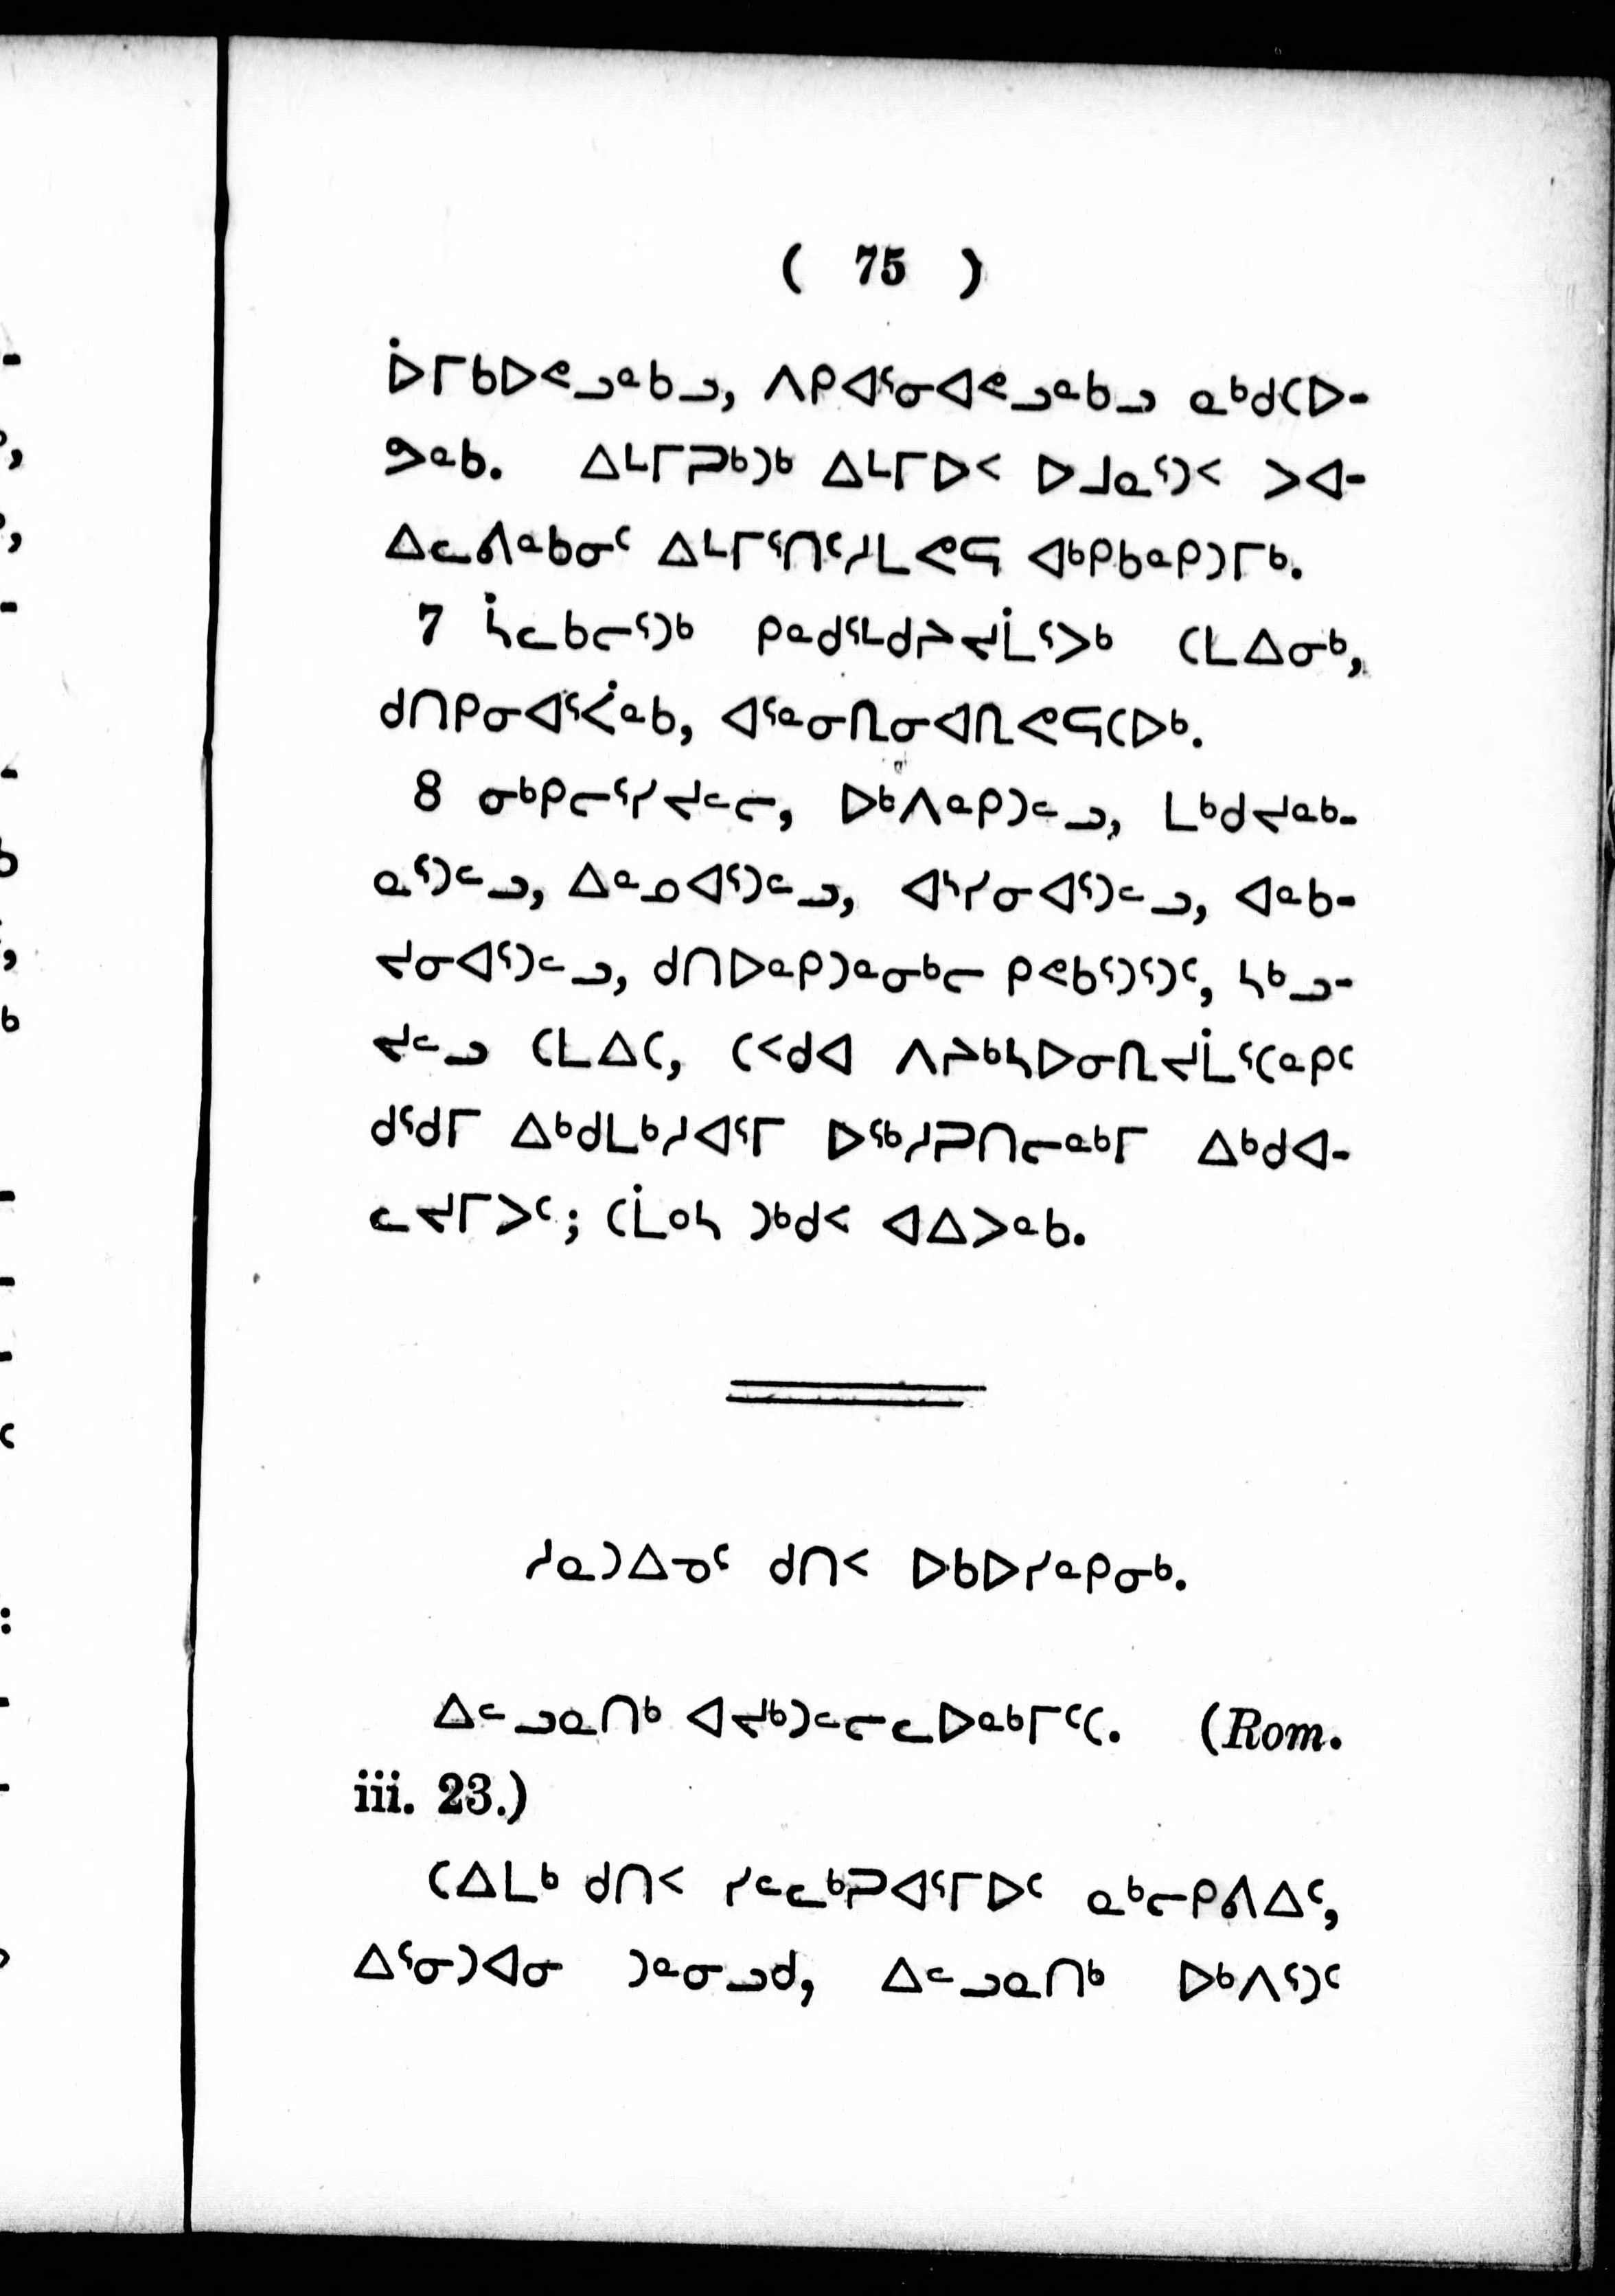 ( 75 )
ᐆᒥᑲᐅᕙᓗᓐᑲᓗ, ᐱᑭᐊᕐᓂᐊᕙᓗᓐᑲᓗ ᓇᒃᑯᑕᐅ-
ᕗᓐᑲ. ᐃᒻᒥᕈᒃᑐᒃ ᐃᒻᒥᐅᑉ ᐅᒧᓇᕐᑐᑉ ᐳᐊ-
ᐃᓚᕕᓐᑲᓂᑦ ᐃᒻᒥᕐᑎᑦᓱᒪᕙᕋ ᐊᒃᑭᑲᓐᑭᑐᒥᒃ.
7 ᓵᓚᑲᓕᕐᑐᒃ ᑭᓐᑯᕐᒪᑯᔨᔪᒫᕐᐳᒃ ᑕᒪᐃᓂᒃ,
ᑯᑎᑭᓂᐊᕐᐹᓐᑲ, ᐊᕐᓐᓂᕆᓂᐊᕆᕙᕋᑕᐅᒃ.
8 ᓂᒃᑭᓕᕐᓯᔪᓪᓕ, ᐅᒃᐱᓐᑭᑐᓪᓗ, ᒪᒃᑯᔪᓐᓇᒃ-
ᓇᕐᑐᓪᓗ, ᐃᓐᓄᐊᕐᑐᓪᓗ, ᐊᔅᓯᓂᐊᕐᑐᓪᓗ, ᐊᓐᑲ-
ᔪᓂᐊᕐᑐᓪᓗ, ᑯᑎᐅᓐᑭᑐᓐᓂᒃᓕ ᑭᕙᑲᕐᑐᕐᑐᑦ, ᓴᒃᓗ-
ᔪᓪᓗ ᑕᒪᐃᑕ, ᑕᑉᑯᐊ ᐱᔨᒃᓴᐅᓂᕆᔪᒫᕐᑕᓐᑭᑦ
ᑯᕐᑯᒥ ᐃᒃᑯᒪᒃᓱᐊᕐᒥ ᐅᕐᒃᓱᕈᑎᓕᓐᒃᒥ ᐃᒃᑯᐊ-
ᓚᔪᒥᐳᑦ; ᑖᒫᓐᓴ ᑐᒃᑯᑉ ᐊᐃᐳᓐᑲ.
ᓱᓇᑐᐃᓀᑦ ᑯᑎᑉ ᐅᑲᐅᓯᓐᑭᓂᒃ.
ᐃᓪᓗᓇᑎᒃ ᐊᔪᒃᑐᓪᓕᓚᐅᓐᒃᒥᑦᑕ. (Rom.
iii. 23.)
ᑕᐃᒪᒃ ᑯᑎᑉ ᓯᓪᓚᒃᕈᐊᕐᒥᐅᑦ ᓇᒃᓕᑭᕕᐃᑦ,
ᐃᕐᓂᑐᐊᓂ ᑐᓐᓂᓗᑯ, ᐃᓪᓗᓇᑎᒃ ᐅᒃᐱᕐᑐᑦ